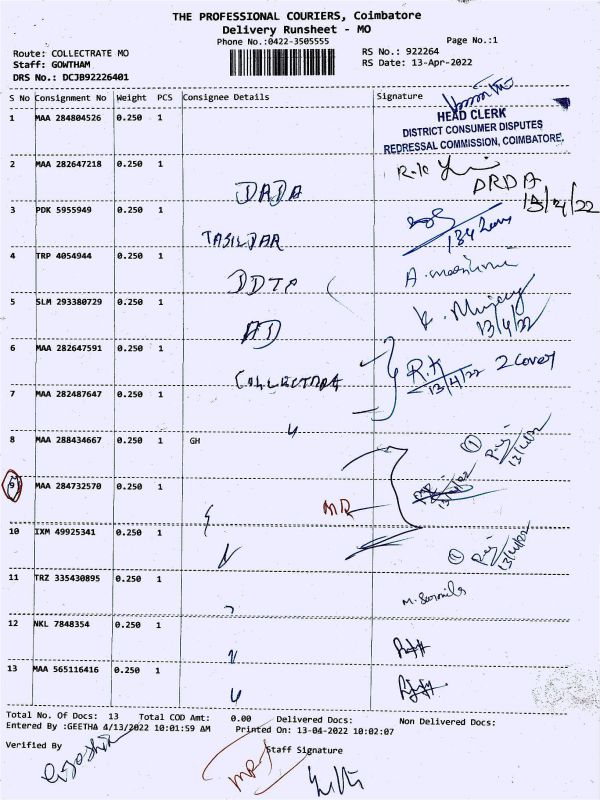 THE PROFESSIONAL COURIERS, Coimbatore
Delivery Runsheet - MO
Phone No.:0422-3505555
Page No.:1
Route: COLLECTRATE MO
RS No.: 922264
Staff: GOWTHAM
RS Date: 13-Apr-2022
DRS No.: DCJB92226401
S No Consignment No Weight PCS Consignee Details Signature
HEAD CLERK
DISTRICT CONSUMER DISPUTES
REDRESSAL COMMISSION, COIMBATORE.
1 MAA 284804526 0.250 1
2 MAA 282647218 0.250 1 R.K
DRDA
13/4/22
3 PDK 5955949 0.250 1
TASILDAR
4 TRP 4054944 0.250 1
5 SLM 293380729 0.250 1
13/4/22
6 MAA 282647591 0.250 1 R.K 2 cover
13/4/22
7 MAA 282487647 0.250 1
8 MAA 288434667 0.250 1 GH
13/4/22
9 MAA 284732570 0.250 1
MR
10 IXM 49925341 0.250 1
13/4/22
11 TRZ 335430895 0.250 1
12 NKL 7848354 0.250 1
13 MAA 565116416 0.250 1
Total No. Of Docs: 13 Total COD Amt: 0.00 Delivered Docs: Non Delivered Docs:
Entered By :GEETHA 4/13/2022 10:01:59 AM Printed On: 13-04-2022 10:02:07
Verified By Staff Signature